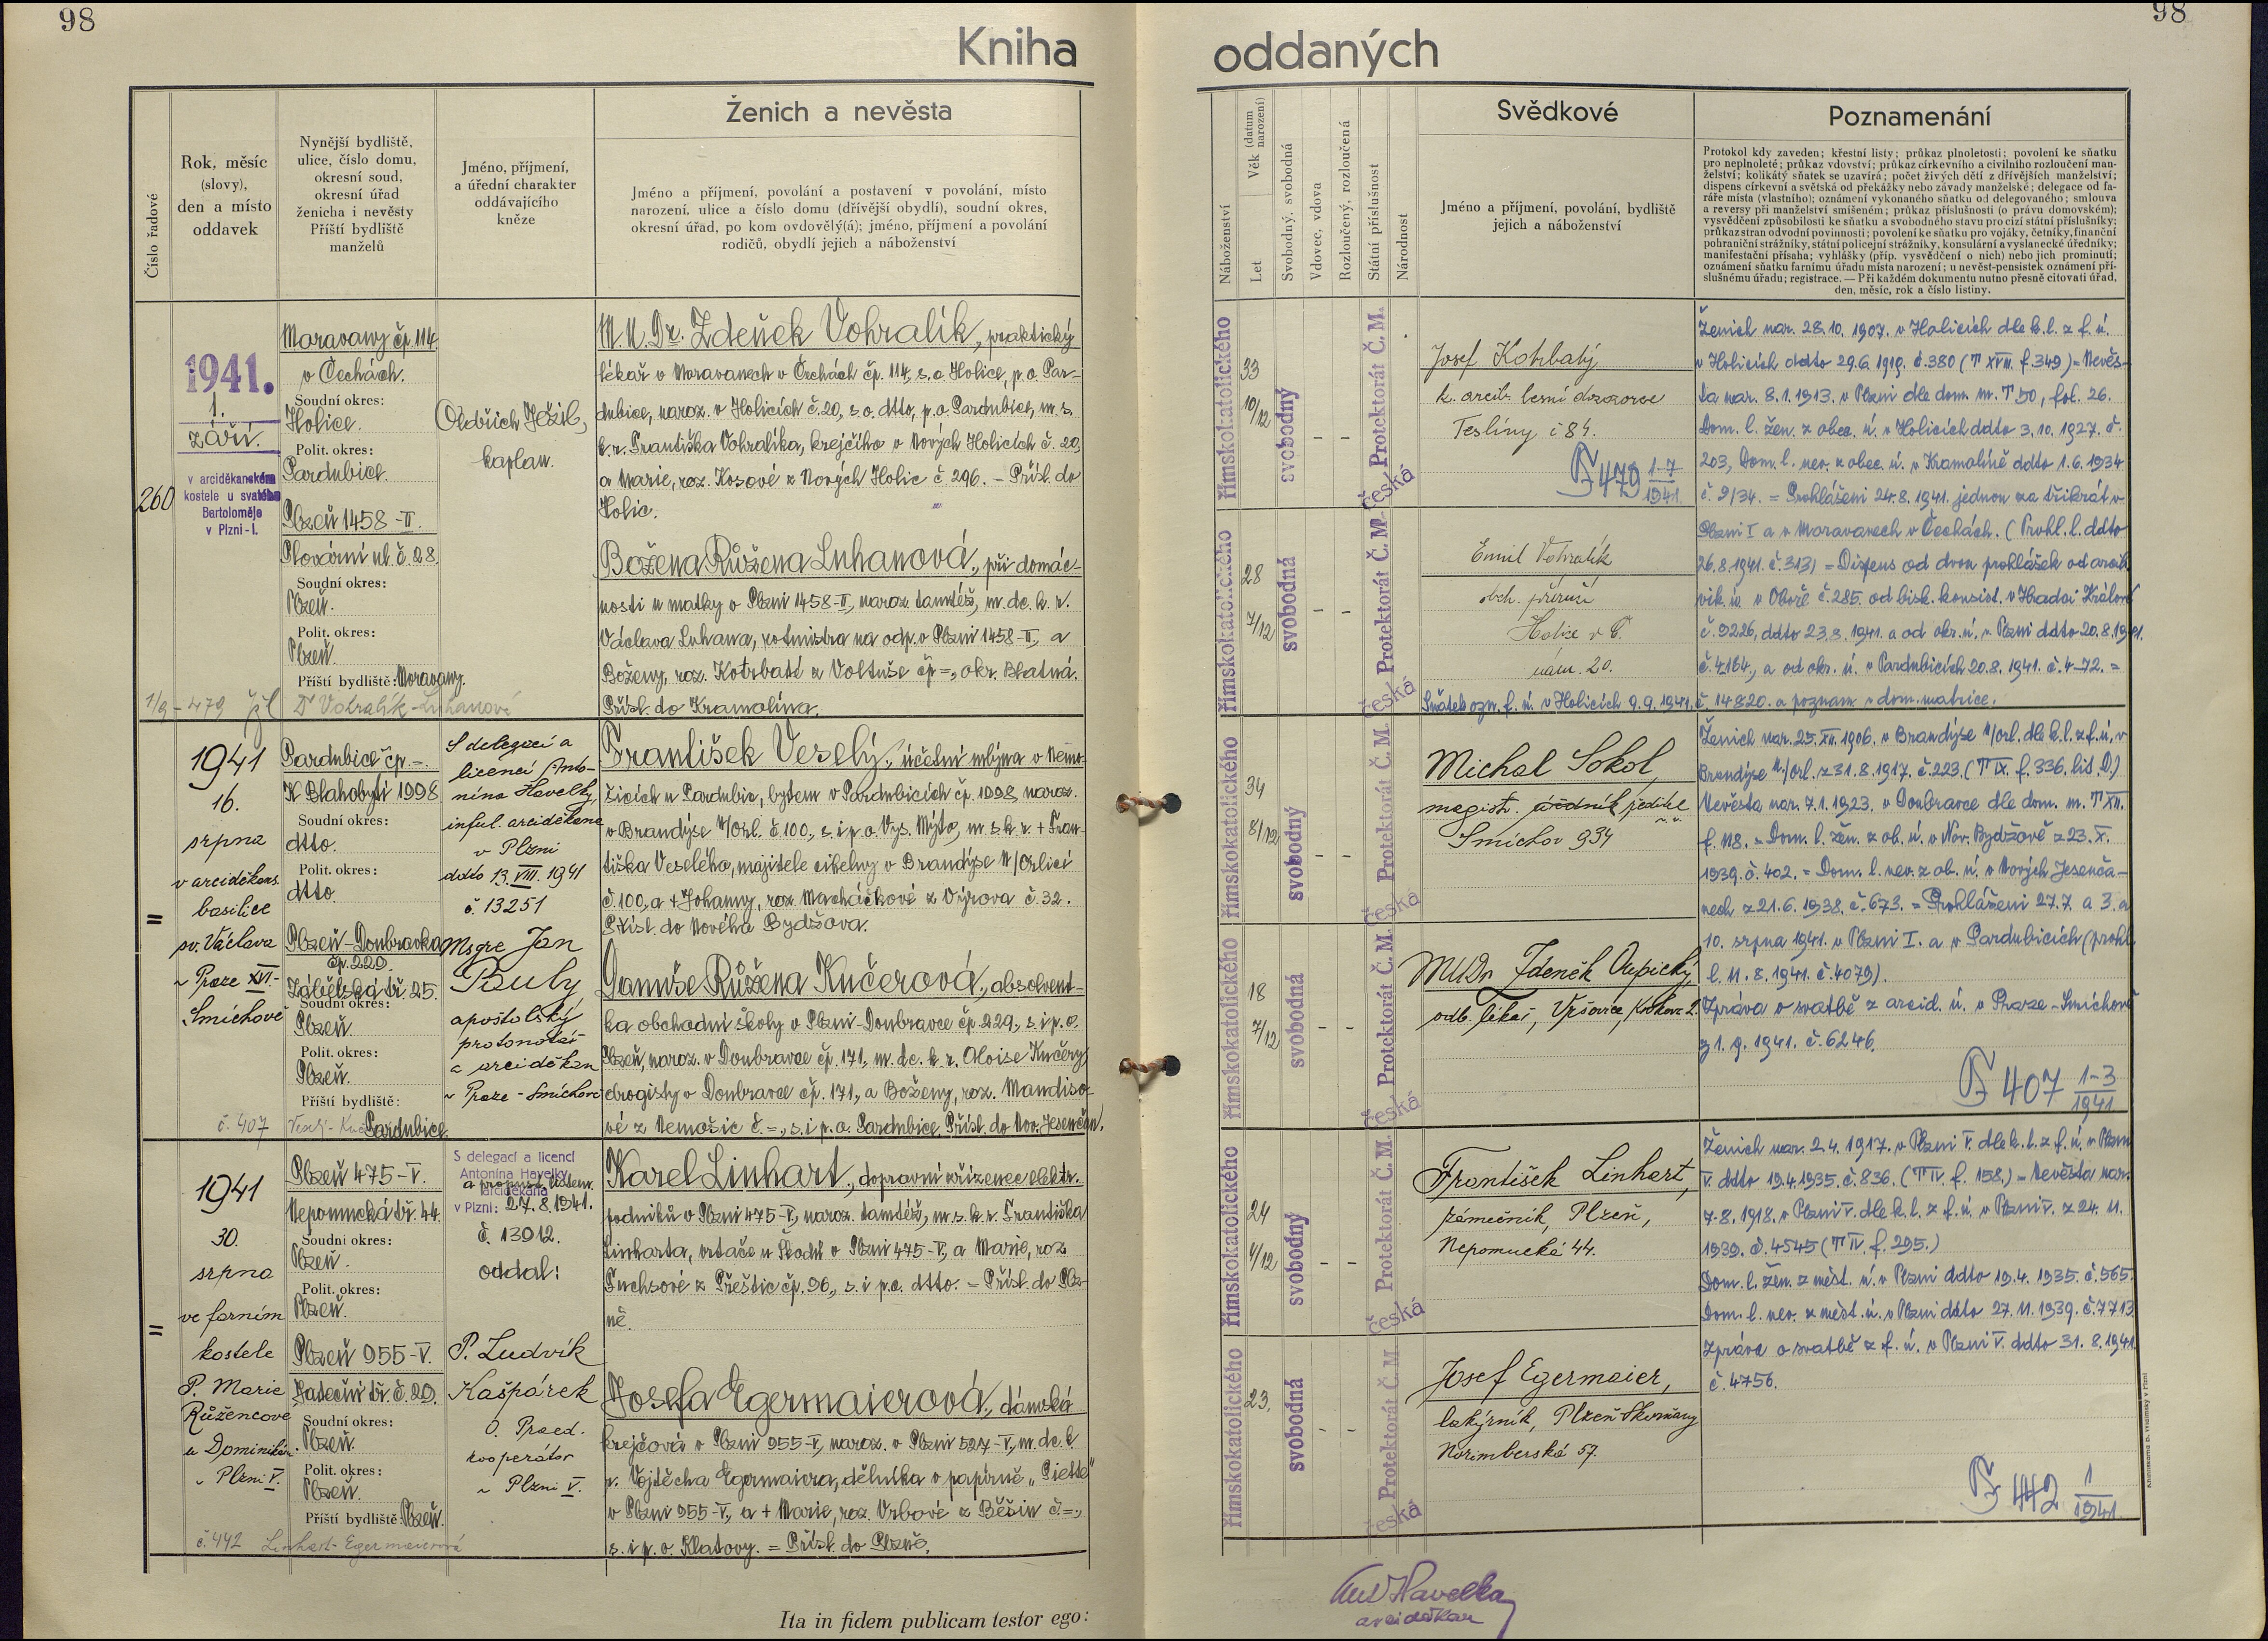 98
98
Kniha
oddaných
Číslo řadové
Rok, měsíc
(slovy),
den a místo
oddavek
Nynější bydliště,
ulice, číslo domu,
okresní soud,
okresní úřad
ženicha i nevěsty
Příští bydliště
manželů
Jméno, příjmení,
a úřední charakter
oddávajícího
kněze
Ženich a nevěsta
Jméno a příjmení, povolání a postavení v povolání, místo
narození, ulice a číslo domu (dřívější obydlí), soudní okres,
okresní úřad, po kom ovdověly(á); jméno, příjmení a povolání
rodičů, obydlí jejich a náboženství
Náboženství
Věk (datum narození)
Let
Svobodný, svobodná
Vdovec, vdova
Rozloučený, rozloučená
Státní příslušnost
Národnost
Svědkové
Jméno a příjmení, povolání, bydliště
jejich a náboženství
Poznamenání
Protokol kdy zaveden; křestní listy; průkaz plnoletosti; povolení ke sňatku
pro neplnoleté; průkaz vdovství; průkaz církevního a civilního rozloučení man-
želství; kolikátý sňatek se uzavírá; počet živých dětí z dřívějších manželství;
dispens církevní a světská od překážky nebo závady manželské; delegace od fa-
ráře místa (vlastního); oznámení vykonaného sňatku od delegovaného; smlouva
a reversy při manželství smíšeném; průkaz příslušnosti (o právu domovském);
vysvědčení způsobilosti ke sňatku a svobodného stavu pro cizí státní příslušníky;
průkaz stran odvodní povinnosti; povolení ke sňatku pro vojáky, četníky, finanční
pohraniční strážníky, státní policejní strážníky, konsulární a vyslanecké úředníky;
manifestační přísaha; vyhlášky (příp. vysvědčení o nich) nebo jich prominutí;
oznámení sňatku farnímu úřadu místa narození; u nevěst-pensistek oznámení pří-
slušnému úřadu; registrace. — Při každém dokumentu nutno přesně citovati úřad,
den, měsíc, rok a číslo listiny.
260
1941.
1.
září.
v arciděkanském
kostele u svatého
Bartoloměje
v Plzni-I.
Moravany čp. 114
v Čechách.
Soudní okres:
Holice.
Polit. okres:
Pardubice.
Plzeň 1458-II.
Plovární ul. č. 28.
Soudní okres:
Plzeň.
Polit. okres:
Plzeň.
Příští bydliště: Moravany.
1/9 - 479
Dr Vohralík-Luhanová
Oldřich Ježil,
kaplan.
M.U.Dr. Zdeněk Vohralík, praktický
lékař v Moravanech v Čechách čp. 114, s.o. Holice, p.o. Par-
dubice, naroz. v Holicích č. 20, s.o. dtto, p.o. Pardubice, m.s.
k.r. Františka Vohralíka, krejčího v Nových Holicích č. 20,
a Marie, roz. Kosové z Nových Holic č 296. - Přísl. do
Holic.
Božena Růžena Luhanová, při domác-
nosti u matky v Plzni 1458-II, naroz. tamtéž, m.dc. k. r.
Václava Luhana, rotmistra na odp. v Plzni 1458-II, a
Boženy, roz. Kotrbaté z Voltuše čp =, okr. Blatná.
Přísl. do Kramolína.
římskokatolického
33
10/12
svobodný
- -
Protektorát Č. M.
Česká
Josef Kotrbatý
k. arcib. lesní dozorce
Teslíny č 84.
479 1-7
1941.
římskokatolického
28
7/12
svobodná
- -
Protektorát Č. M.
Česká
Emil Vohralík
obch. příručí
Holice v Č.
nám. 20.
Ženich nar. 28.10. 1907. v Holicích dle k.l. z f.ú.
v Holicích ddto 29.6. 1919. č. 380 (T XVII. f. 349) = Nevěs-
ta nar. 8.1. 1913. v Plzni dle dom. m. T 50, fol. 26.
Dom. l. žen. z obec. ú. v Holicích ddto 3.10. 1927. č.
203, Dom. l. nev. z obec. ú. v Kramolíně ddto 1.6. 1934
č. 9/34. = Prohlášeni 24.8. 1941. jednou za třikrát v
Plzni I a v Moravanech v Čechách. (Prohl. l. ddto
26.8.1941. č. 313) = Dispens od dvou prohlášek od arcib.
vik. ú. v Oboře č. 285. od bisk. konsist. v Hradci Králové
č. 9226, ddto 23.8. 1941. a od okr. ú. v Plzni ddto 20.8.1941.
č. 4164., a od okr. ú. v Pardubicích 20.8. 1941. č. 4-72. =
Sňatek ozn. f. ú. v Holicích 9.9. 1941. č. 14820. a poznam. v dom. matrice.
=
1941
16.
srpna
v arciděkans.
basilice
sv. Václava
v Praze XVI-
Smíchově
Pardubice čp. -.
K Blahobytí 1998
Soudní okres:
dtto.
Polit. okres:
dtto.
Plzeň-Doubravka
čp. 229.
Zábělská tř. 25.
Soudní okres:
Plzeň.
Polit. okres:
Plzeň.
Příští bydliště:
Pardubice.
č. 407
S delegací a
licencí Anto-
nína Havelky,
inful. arciděkana
v Plzni
ddto 13. VIII. 1941
č. 13251
Msgre Jan
Pauly
apoštolský
protonotář
a arciděkan
v Praze-Smíchově
František Veselý, účetní mlýna v Nemo-
šicích u Pardubic, bytem v Pardubicích čp. 1998, naroz.
v Brandýse n/Orl. č. 100, s. i p. o. Vys. Mýto, m. s. k. r. + Fran-
tiška Veselého, majitele cihelny v Brandýse n/Orlicí
č. 100, a + Johanny, roz. Macháčkové z Výrova č. 32.
Přísl. do Nového Bydžova.
Danuše Růžena Kučerová, absolvent-
ka obchodní školy v Plzni-Doubravce čp. 229, s. i p. o.
Plzeň, naroz. v Doubravce čp. 171, m. dc. k. r. Aloise Kučery
drogisty v Doubravce čp. 171, a Boženy, roz. Mandiso-
vé z Nemošic č. =, s. i p. o. Pardubice. Přísl. do Nov. Jesenčan.
římskokatolického
34
8/12
svobodný
- -
Protektorát Č. M.
Česká
Michal Sokol,
magistr.
Smíchov 934
římskokatolického
18
7/12
svobodná
- -
Protektorát Č. M.
Česká
MUDr Zdeněk
odb. lékař, Vršovice,
Ženich nar. 25. XII. 1906. v Brandýse n/Orl. dle k.l. z f.ú. v
Brandýse n./Orl. z 31.8.1917. č. 223. (T IX. f. 336. lit. D.)
Nevěsta nar. 7.1. 1923. v Doubravce dle dom. m. T XII.
f. 118. = Dom. l. žen. z ob. ú. v Nov. Bydžově z 23. X.
1939. č. 402. = Dom. l. nev. z ob. ú. v Nových Jesenča-
nech z 21.6. 1938. č. 673. = Prohlášeni 27.7. a 3. a
10. srpna 1941. v Plzni I. a v Pardubicích (prohl.
l. 11.8. 1941. č. 4079).
Zpráva o svatbě z arcid. ú. v Praze-Smíchově
z 1.9. 1941. č. 6246.
407 1-3
1941
=
1941
30.
srpna
ve farním
kostele
P. Marie
Růžencové
u Dominikán.
v Plzni V.
Plzeň 475-V.
Nepomucká tř. 44.
Soudní okres:
Plzeň.
Polit. okres:
Plzeň.
Plzeň 955-V.
č. 29.
Soudní okres:
Plzeň.
Polit. okres:
Plzeň.
Příští bydliště: Plzeň.
č. 442 Linhart-Egermaierová
S delegací a licencí
Antonína Havelky
arciděkana
v Plzni: 27.8.1941.
č. 13012.
oddal:
P. Ludvík
Kašpárek
O. Praed.
kooperátor
v Plzni V.
Karel Linhart, dopravní zřízenec elektr.
podniků v Plzni 475-V, naroz. tamtéž, m. s. k. r. Františka
Linharta, vrtače u Škodů v Plzni 475-V, a Marie, roz.
Fuchsové z Přeštic čp. 96, s. i p. o. dtto. - Přísl. do Plz-
ně.
Josefa Egermaierová, dámská
krejčová v Plzni 955-V, naroz. v Plzni 527-V, m. dc. k.
r. Vojtěcha Egermaiera, dělníka v papírně „Piette"
v Plzni 955-V, a + Marie, roz. Vrbové z Běšin č. =,
s. i p. o. Klatovy. = Přísl. do Plzně.
římskokatolického
24
4/12
svobodný
- -
Protektorát Č. M.
česká
František Linhart,
zámečník, Plzeň,
Nepomucká 44.
římskokatolického
23.
svobodná
- -
Protektorát Č. M.
česká
Josef Egermaier,
lakýrník, Plzeň-Skvrňany
Norimberská 57.
Ženich nar. 2.4. 1917. v Plzni V. dle k.l. z f. ú. v Plzni
V. ddto 19.4.1935. č. 836. (T IV. f. 158.) = Nevěsta nar.
7.8. 1918. v Plzni V. dle k.l. z f. ú. v Plzni V. z 24. 11.
1939. č. 4545 (T IV. f. 295.)
Dom. l. žen. z měst. ú. v Plzni ddto 19.4. 1935. č. 565.
Dom. l. nev. z měst. ú. v Plzni ddto 27.11. 1939. č. 7713
Zpráva o svatbě z f. ú. v Plzni V. ddto 31. 8. 1941
č. 4756.
442 1
1941.
Ita in fidem publicam testor ego:
Ant Havelka
arciděkan